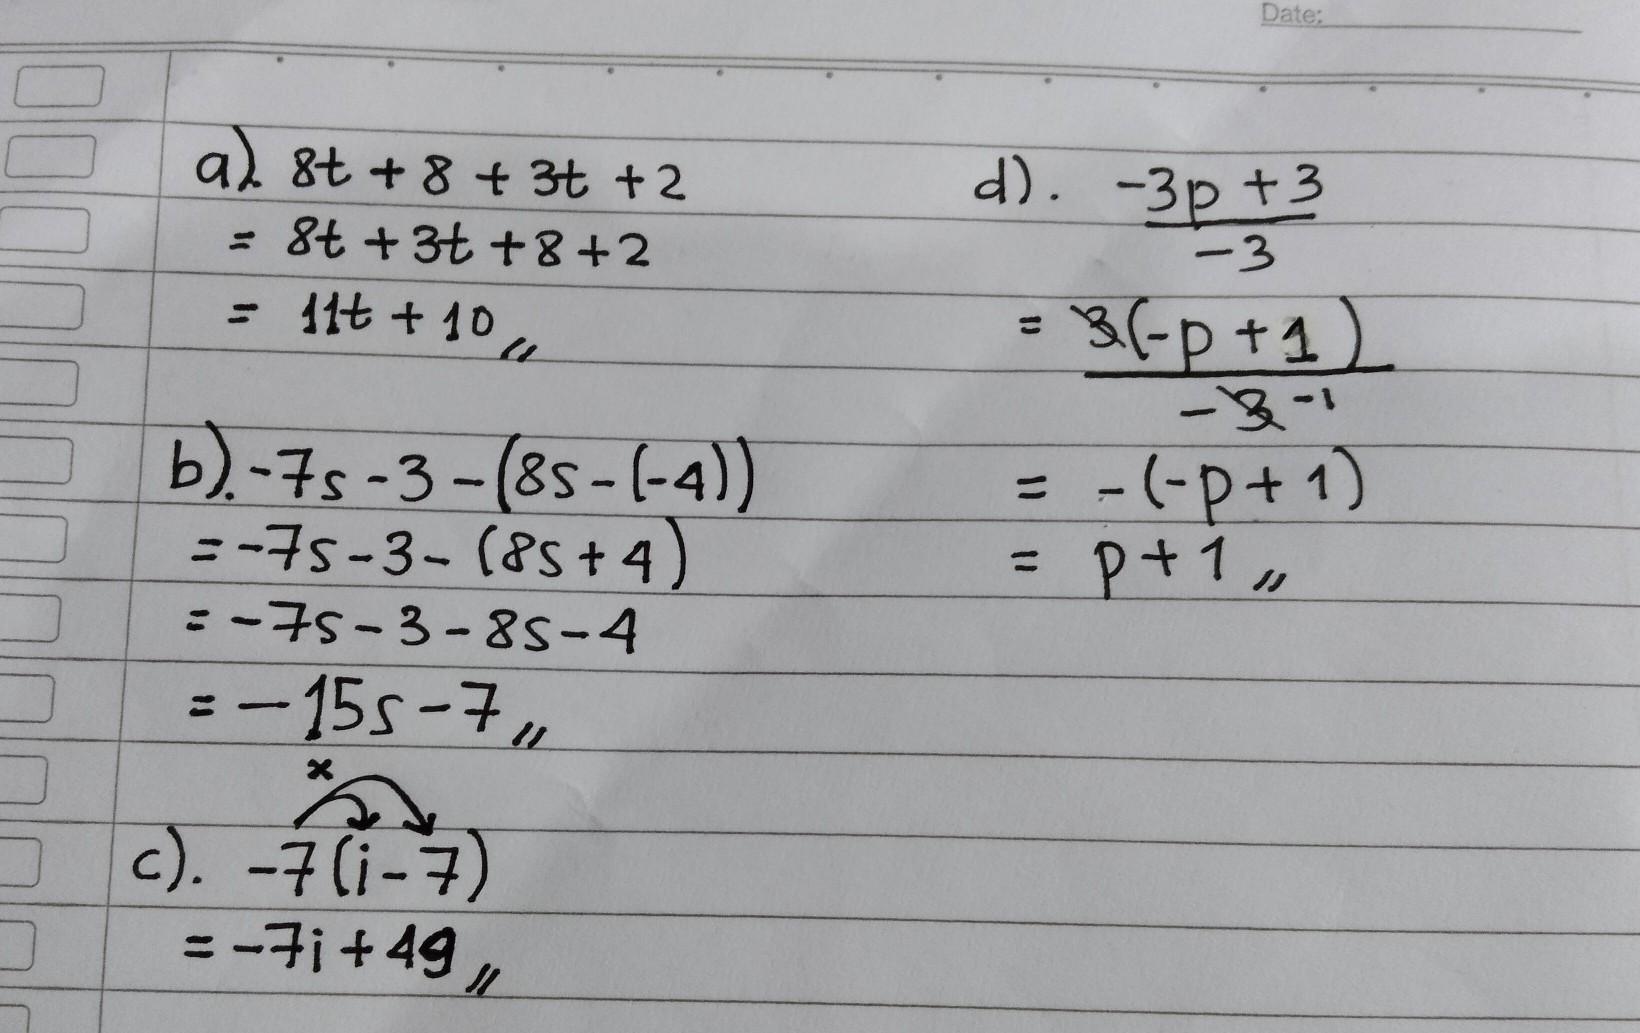 Date:
a). 8t + 8 + 3t + 2
= 8t + 3t + 8 + 2
= 11t + 10 //
b). -7s - 3 - (8s - (-4))
= -7s - 3 - (8s + 4)
= -7s - 3 - 8s - 4
= -15s - 7 //
x
c). -7(i - 7)
= -7i + 49 //
d). -3p + 3
-3
= 3(-p + 1)
-3 -1
= -(-p + 1)
= p + 1 //